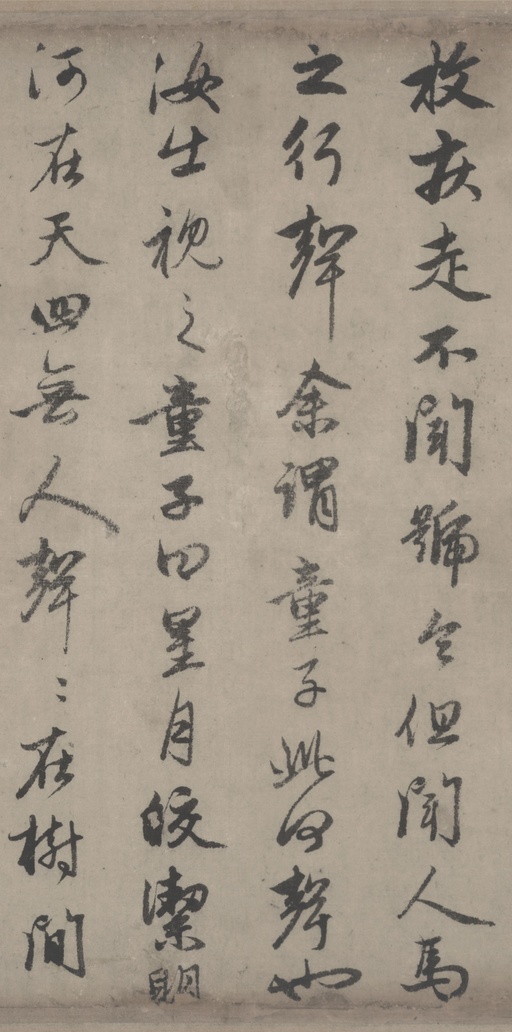 枚疾走不聞號令但聞人馬
之行聲余謂童子此何聲也
汝出視之童子曰星月皎潔明
河在天四無人聲〻在樹間